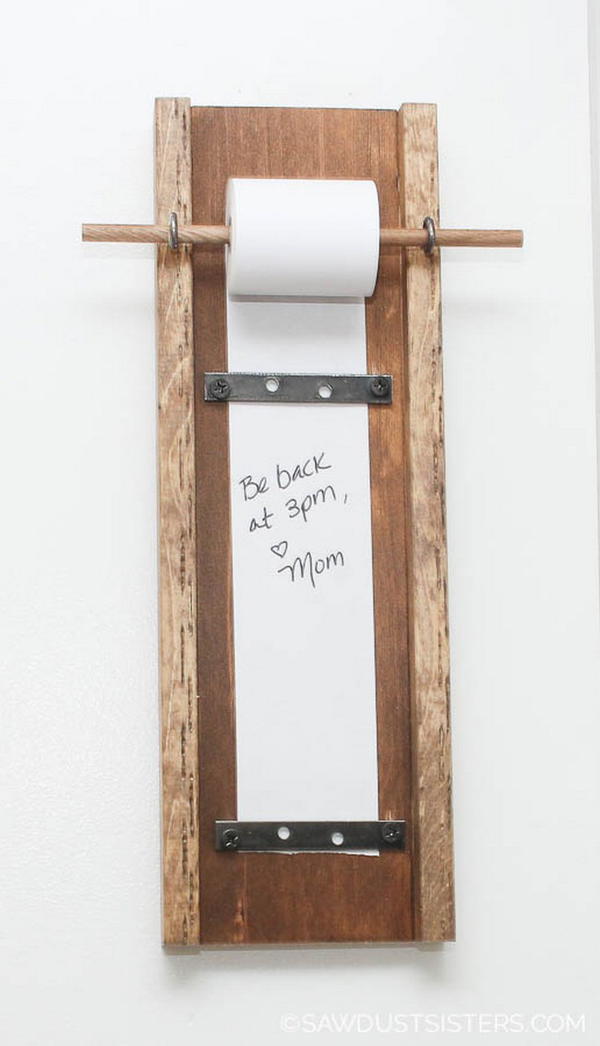 Be back
at 3pm,
♡
Mom
©SAWDUSTSISTERS.COM